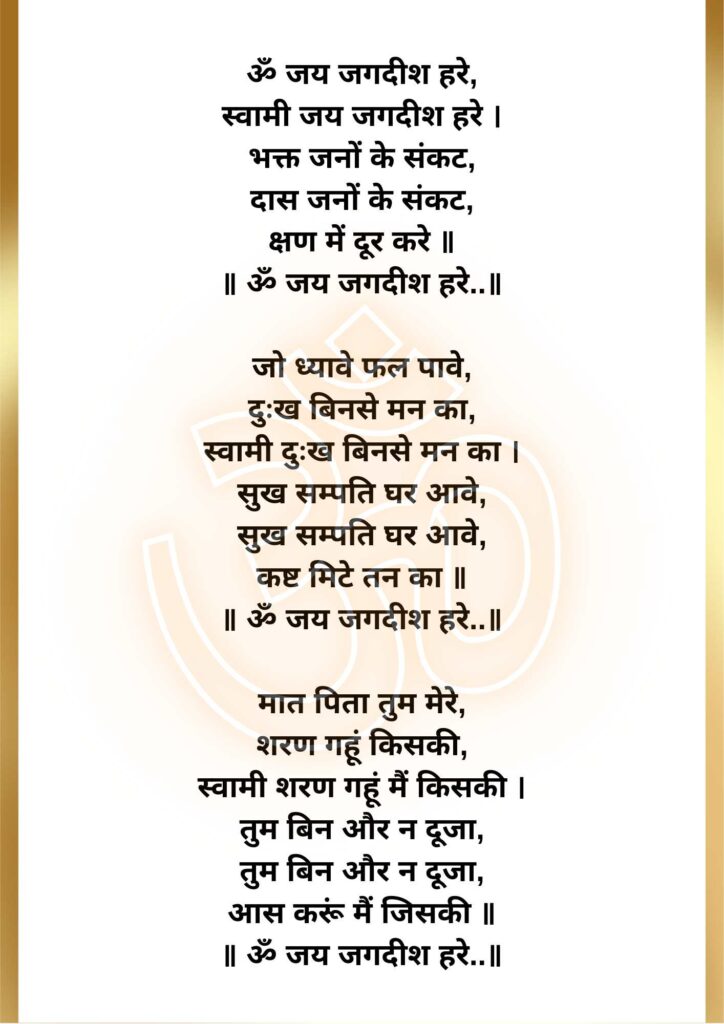 ॐ जय जगदीश हरे,
स्वामी जय जगदीश हरे ।
भक्त जनों के संकट,
दास जनों के संकट,
क्षण में दूर करे ॥
॥ ॐ जय जगदीश हरे..॥
जो ध्यावे फल पावे,
दुःख बिनसे मन का,
स्वामी दुःख बिनसे मन का ।
सुख सम्पति घर आवे,
सुख सम्पति घर आवे,
कष्ट मिटे तन का ॥
॥ ॐ जय जगदीश हरे..॥
मात पिता तुम मेरे,
शरण गहूं किसकी,
स्वामी शरण गहूं मैं किसकी ।
तुम बिन और न दूजा,
तुम बिन और न दूजा,
आस करूं मैं जिसकी ॥
॥ ॐ जय जगदीश हरे..॥